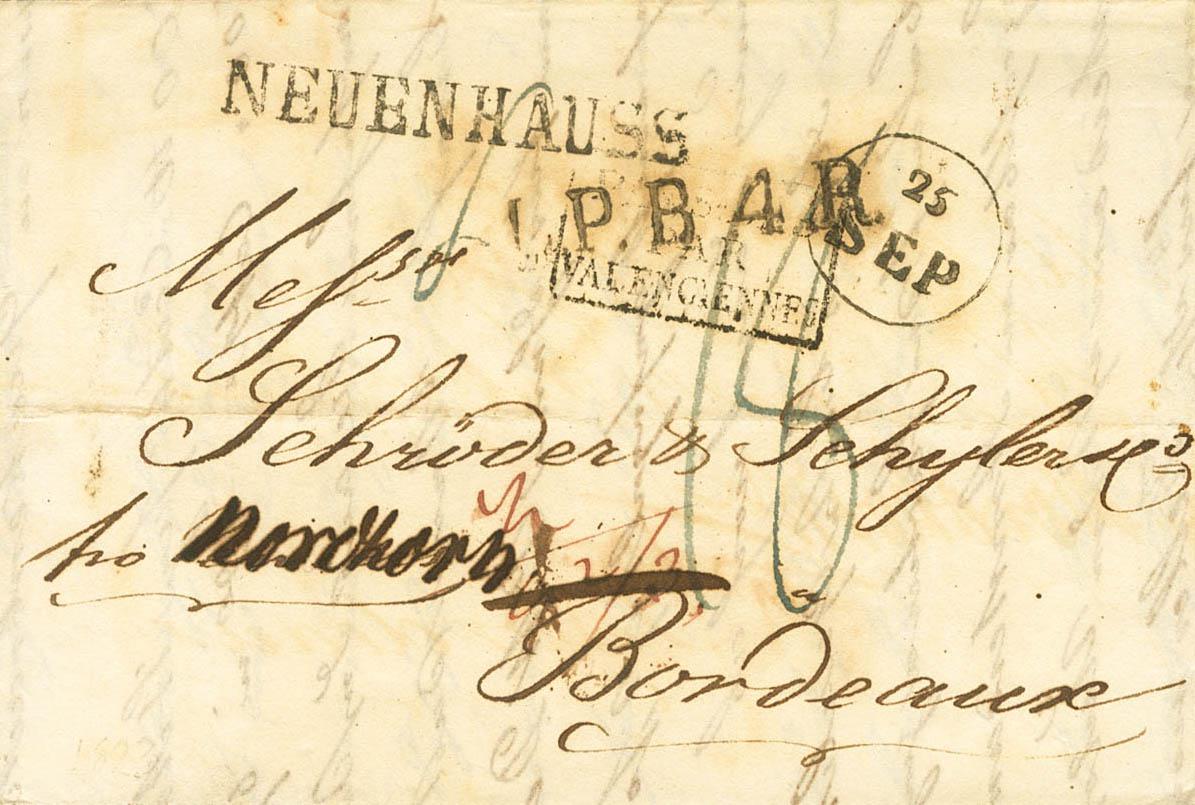 NEUENHAUSS
25
SEP
L.P.B.4.R
PAR
VALENCIENNES
Messrs
Schröder & Schyler & Co
pro Nordhorn
18
a
Bordeaux